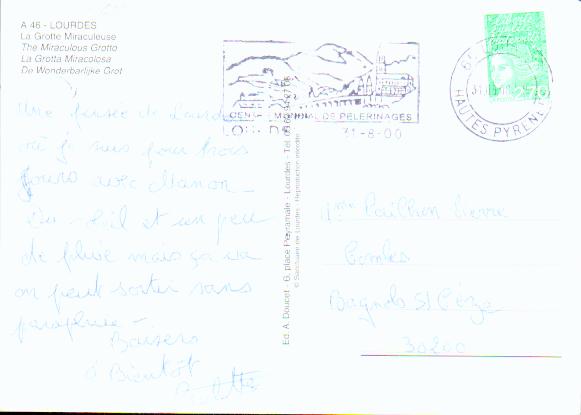 A 46 - LOURDES
La Grotte Miraculeuse
The Miraculous Grotto
La Grotta Miracolosa
De Wonderbarlijke Grot
CENTRE MONDIAL DE PELERINAGES
31-8-00
HAUTES PYRENEES
Une pensée de Lourdes
où je suis pour trois
jours avec Manon -
Du soleil et un peu
de pluie mais ça va
on peut sortir sans
parapluie -
Baisers
à Bientôt
Ed. A. Doucet - 6, place Peyramale - Lourdes - Tel
© Sanctuaire de Lourdes - Reproduction interdite
Mme Pierre
Combes
Bagnols St Cèze
30200